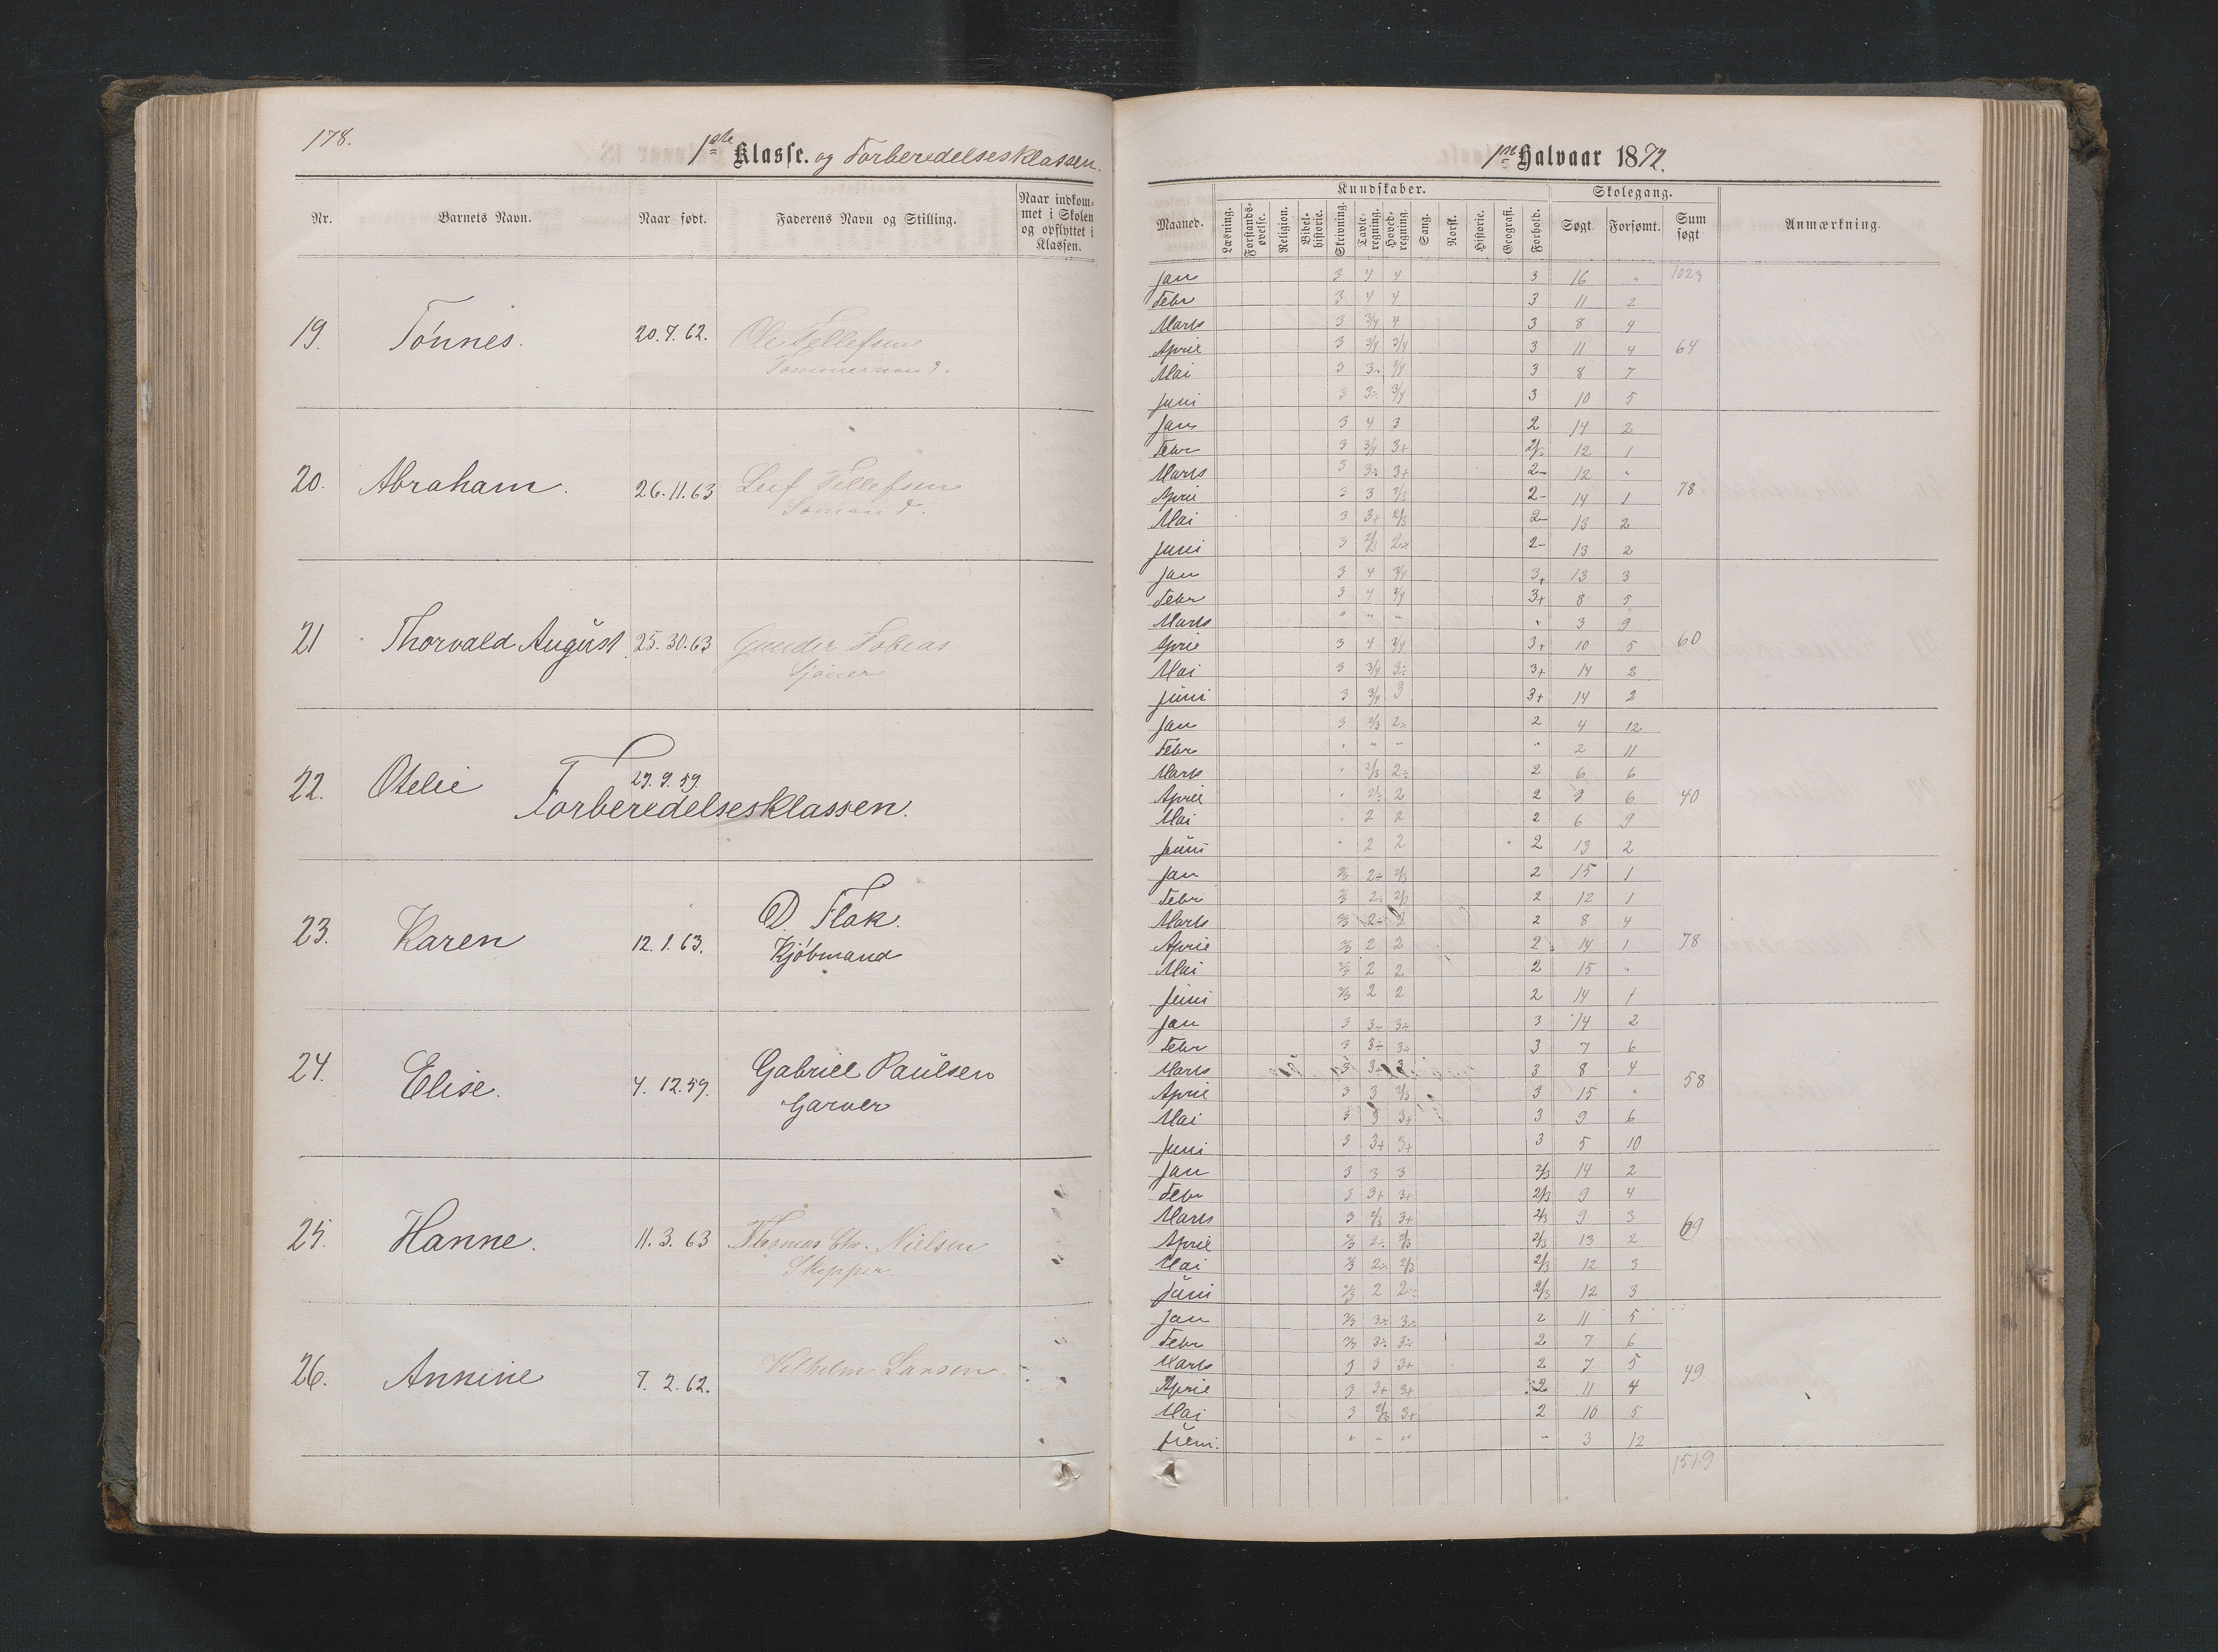 178.
1ste Klasse. og Forberedelsesklassen.
Nr.
Barnets Navn.
Naar født.
Faderens Navn og Stilling.
Naar indkom-
met i Skolen
og opflyttet i
Klassen.
19. Tönnes. 20.7.62. Ole Tellefsen
Tømmermand.
20. Abraham. 26.11.63 Leif Tellefsen
Sømand.
21 Thorvald August 25.30.63 Gunder Tobias
22. Otelie 29.9.59.
Forberedelsesklassen.
23. Karen 12.1.63. D. Flak.
Kjöbmand
24. Elise. 4.12.59. Gabriel Paulsen
Garver
25. Hanne. 11.3.63 Thomas Chr. Nielsen
Skipper.
26. Annine 7.2.62. Vilhelm Larsen
1ste Halvaar 1872.
Maaned.
Kundskaber.
Læsning.
Forstands-
øvelse.
Religion.
Bibel-
historie.
Skrivning.
Tavle-
regning.
Hoved-
regning.
Sang.
Norsk.
Historie.
Geografi.
Forhold.
Skolegang.
Søgt.
Forsømt.
Sum
søgt
Anmærkning.
Jan 3 4 4 3 16 " 1023
Febr 3 4 4 3 11 2
Marts 3 3/4 4 3 8 4
April 3 3/4 3/4 3 11 4 64
Mai 3 3÷ 3/4 3 8 7
Juni 3 3÷ 3/4 3 10 5
Jan 3 4 3 2 14 2
Febr 3 3/4 3+ 2/÷ 12 1
Marts 3 3÷ 3+ 2- 12 "
April 3 3 2/3 2- 14 1 78
Mai 3 3+ 2/3 2- 13 2
Juni 3 2/3 2÷ 2- 13 2
Jan 3 4 3/4 3+ 13 3
Febr 3 4 3/4 3+ 8 5
Marts " " " " 3 9
April 3 4 3/4 3+ 10 5 60
Mai 3 3/4 3÷ 3+ 14 2
Juni 3 3/4 3 3+ 14 2
Jan 3 2/3 2÷ 2 4 12
Febr " " " " 2 11
Marts " 2/3 2÷ 2 6 6
April " 2÷ 2 2 9 6 40
Mai " 2 2 2 6 9
Juni " 2 2 2 13 2
Jan 2/3 2÷ 2/3 2 15 1
Febr 2/3 2÷ 2/3 2 12 1
Marts 2/3 2÷ 2 2 8 4
April 2/3 2 2 2 14 1 78
Mai 2/3 2 2 2 15 "
Juni 2/3 2 2 2 14 1
Jan 3 3÷ 3÷ 3 14 2
Febr 3 3÷ 3÷ 3 7 6
Marts 3 3÷ 3 3 8 4
April 3 3 2/3 3 15 " 58
Mai 3 3 3+ 3 9 6
Juni 3 3+ 3+ 3 5 10
Jan 3 3 3 2/3 14 2
Febr 3 3+ 3+ 2/3 9 4
Marts 3 2/3 3+ 2/3 9 3 69
April 2/3 2÷ 2/3 2/3 13 2
Mai 2/3 2÷ 2/3 2/3 12 3
Juni 2/3 2 2÷ 2/3 12 3
Jan 2/3 3÷ 3÷ 2 11 5
Febr 2/3 3÷ 3÷ 2 7 6
Marts 3 3 3+ 2 7 5 49
April 3 3+ 3+ 2 11 4
Mai 3 2/3 3+ 2 10 5
Juni. " " " " 3 12
1519